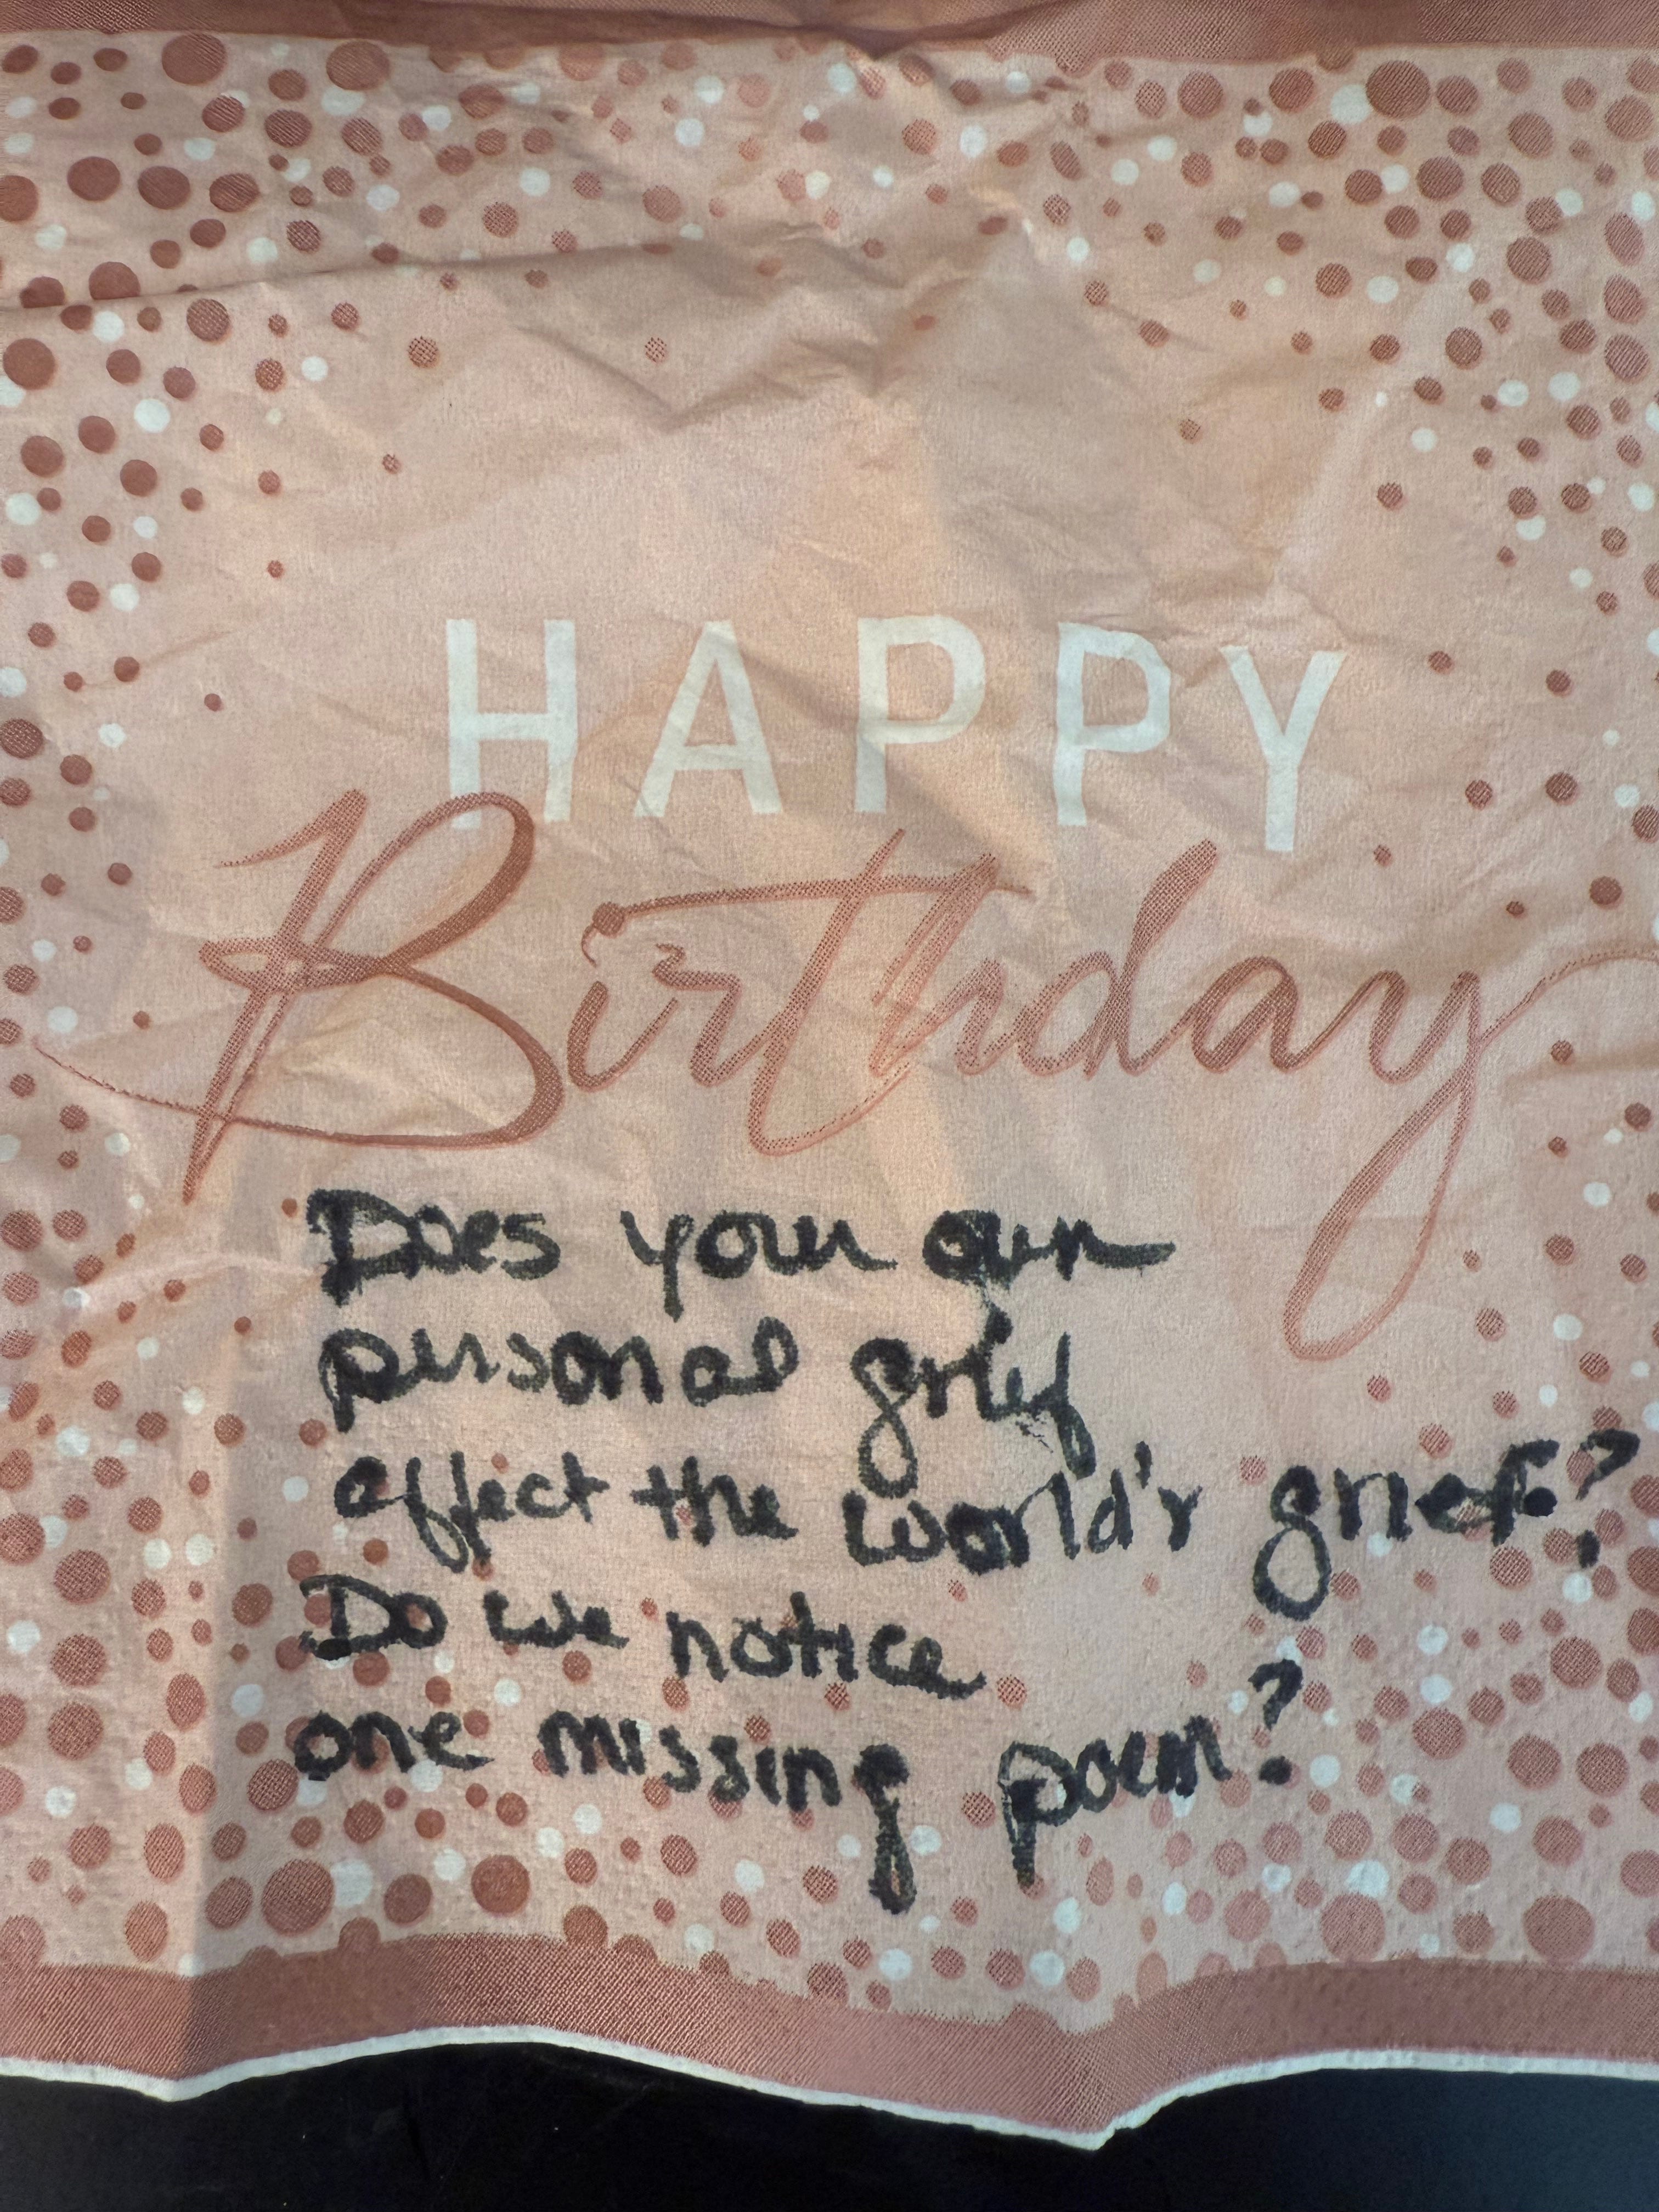 HAPPY
Birthday
Does your own
personal grief
affect the world's grief?
Do we notice
one missing poem?